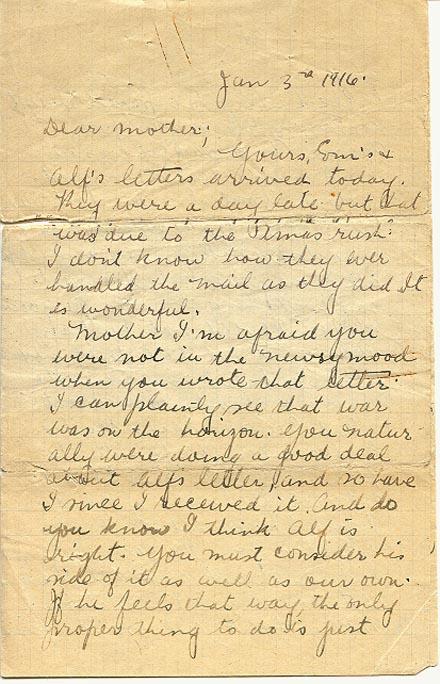 Jan 3rd 1916.
Dear Mother;
Yours, Em's &
Alf's letters arrived today.
They were a day late but that
was due to the "Xmas rush".
I don't know how they ever
handled the mail as they did It
is wonderful.
Mother I'm afraid you
were not in the newsy mood
when you wrote that letter.
I can plainly see that war
was on the horizon. You natur
ally were doing a good deal
about Alf's letter, and so have
I since I received it. And do
you know I think Alf is
right. You must consider his
side of it as well as our own.
If he feels that way, the only
proper thing to do is just